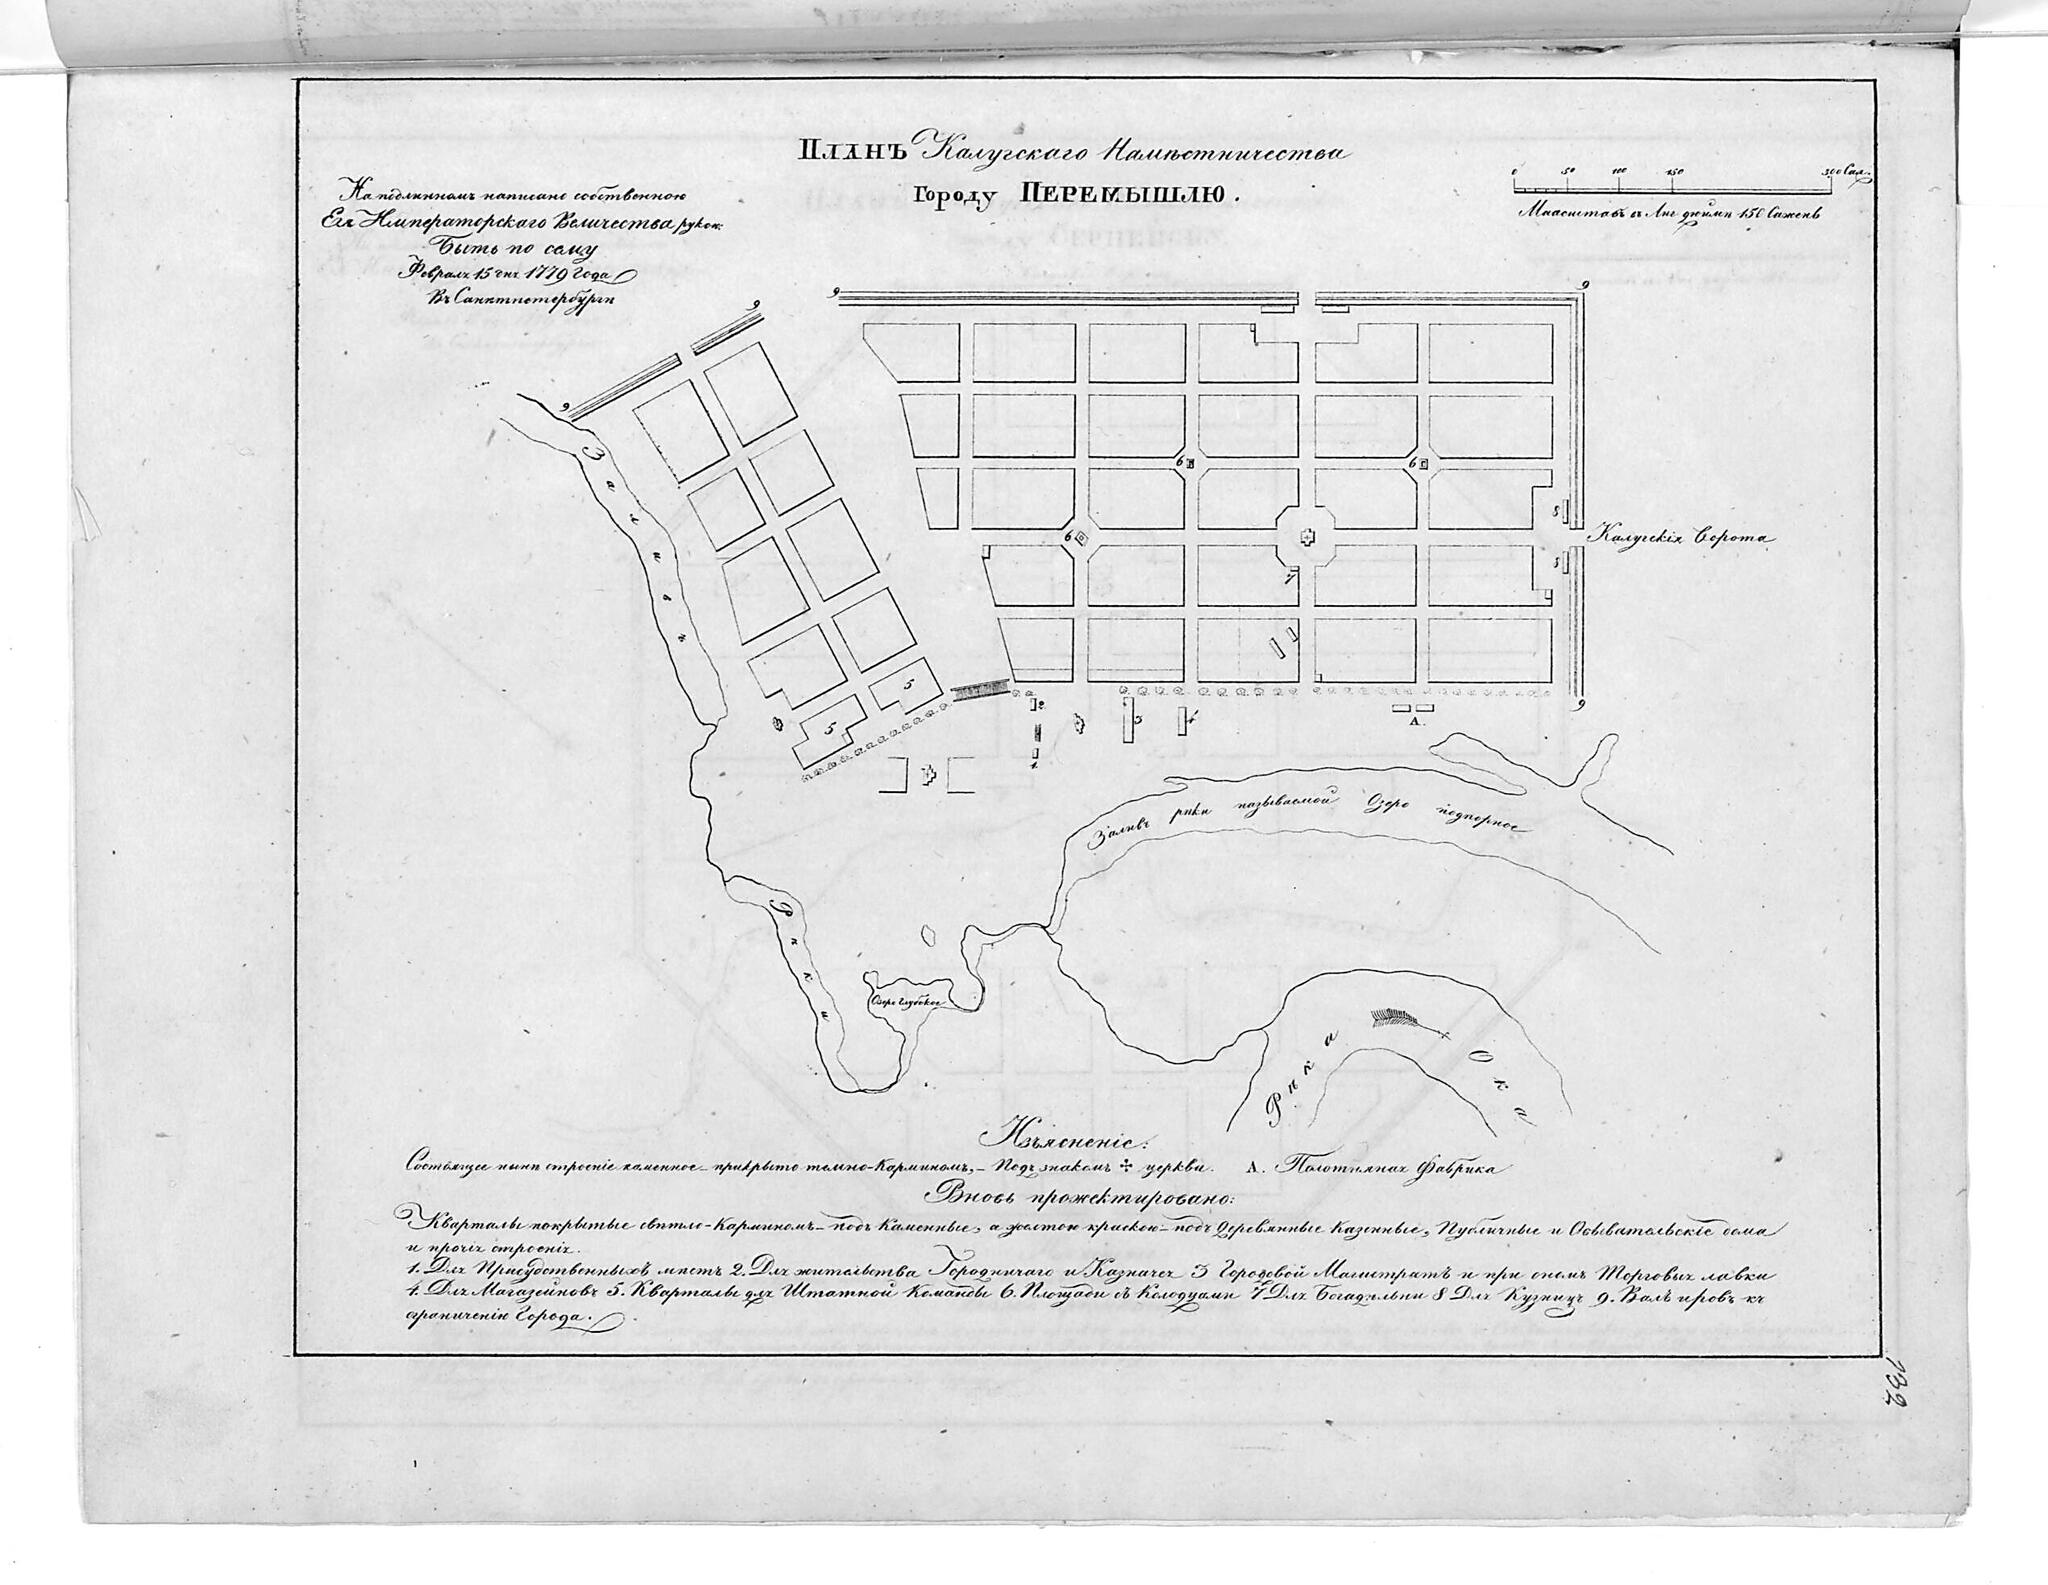 Планъ Калугскаго Намѣстничества
Городу Перемышлю.
На подлинномъ написано собственною
Ея Императорскаго Величества рукою:
Быть по сему
Февраля 15 дня 1779 Года
Въ Санктпетербургѣ
0 50 100 150 300 Саж.
Маасштабъ въ Анг. дюймѣ 150 Саженъ
9 9 9 9 9
6 6
8
Калугскія Ворота
6
8
7
5
5
2
3 4
А.
9
1
Заливъ
Рѣки
Заливъ рѣки называемой Озеро подпорное
Озеро Глубокое
Рѣка Ока
Изъясненіе:
Состоящее нынѣ строеніе каменное прикрыто темно-Карминомъ, — Подъ знакомъ ✢ церкви. А. Полотняная Фабрика
Вновь прожектировано:
Кварталы покрытые свѣтло-Карминомъ — подъ Каменные, а желтою краскою — подъ Деревянные Казенные, Публичные и Обывательскіе дома
и прочія строенія.
1. Для Присудственныхъ мѣстъ 2. Для жительства Городничаго и Казначея 3 Городовой Магистратъ и при ономъ Торговыя лавки
4. Для Магазейновъ 5. Кварталы для Штатной Команды 6. Площади съ Колодцами 7 Для Богадѣльни 8 Для Кузницъ 9. Валъ и ровъ къ
ограниченію Города.
132